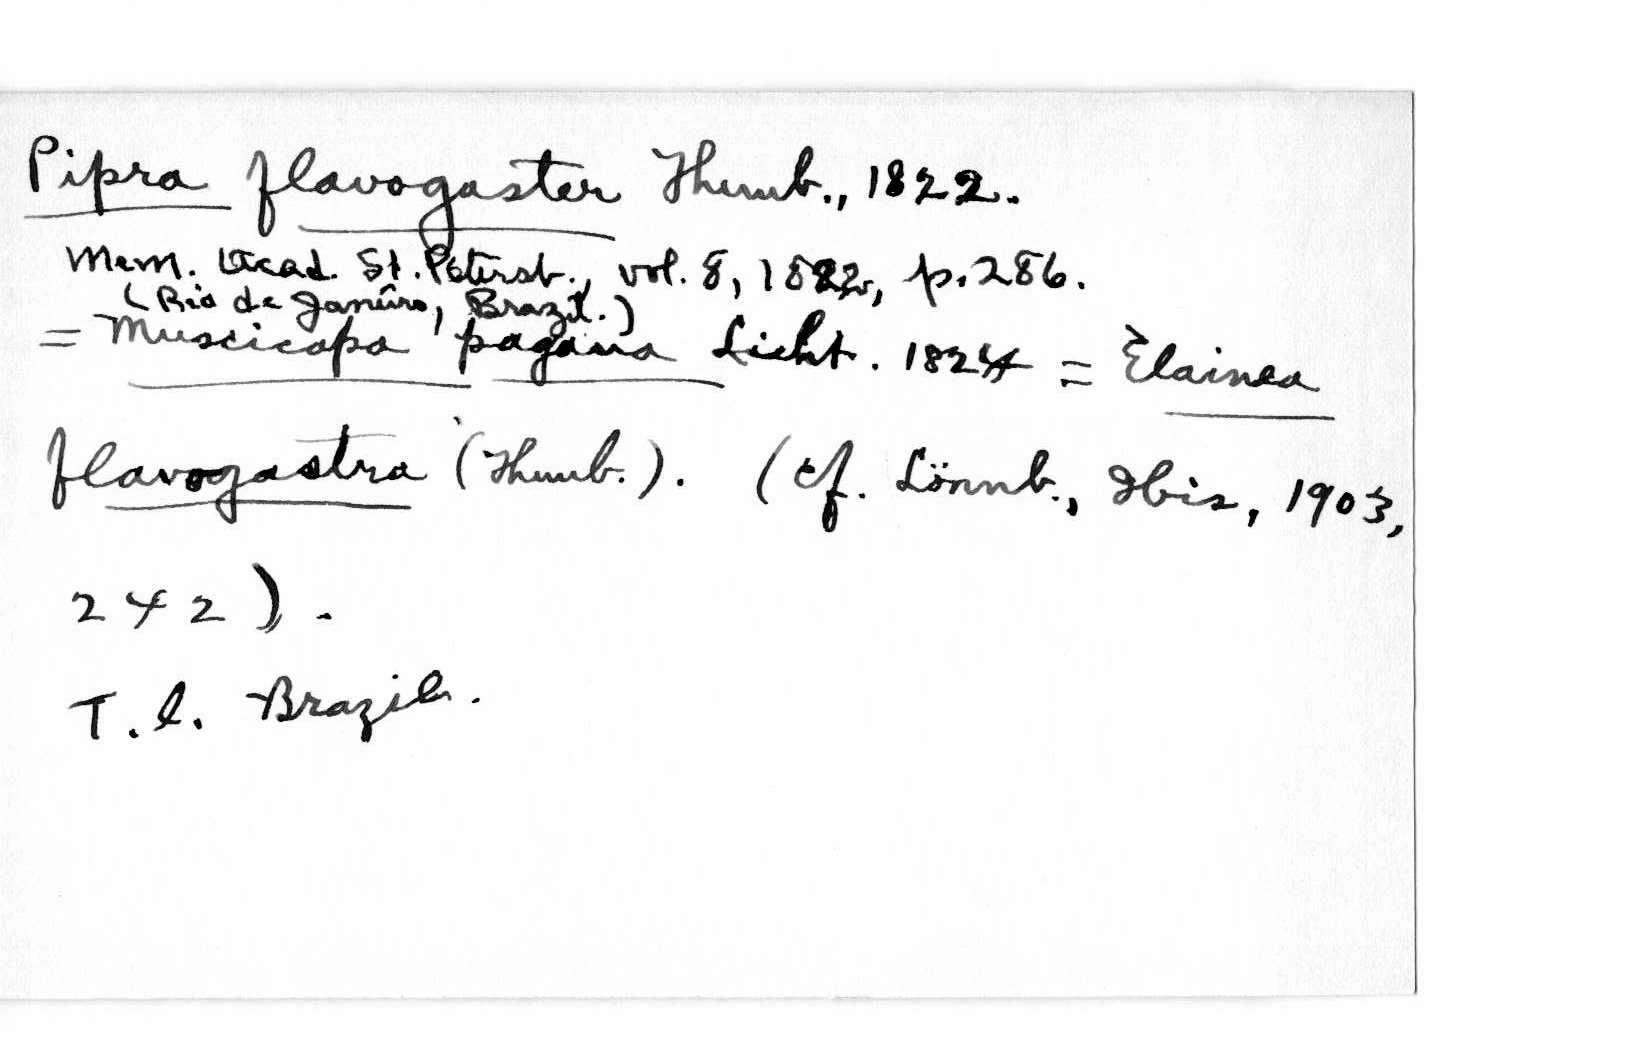 Pipra flavogaster Thunb., 1822.
Mem. Acad. St. Petersb., vol. 8, 1822, p. 286.
(Rio de Janeiro, Brazil.)
= Muscicapa pagana Licht. 1824 = Elainea
flavogastra (Thunb.). (cf. Lönnb., Ibis, 1903,
242).
T. l. Brazil.